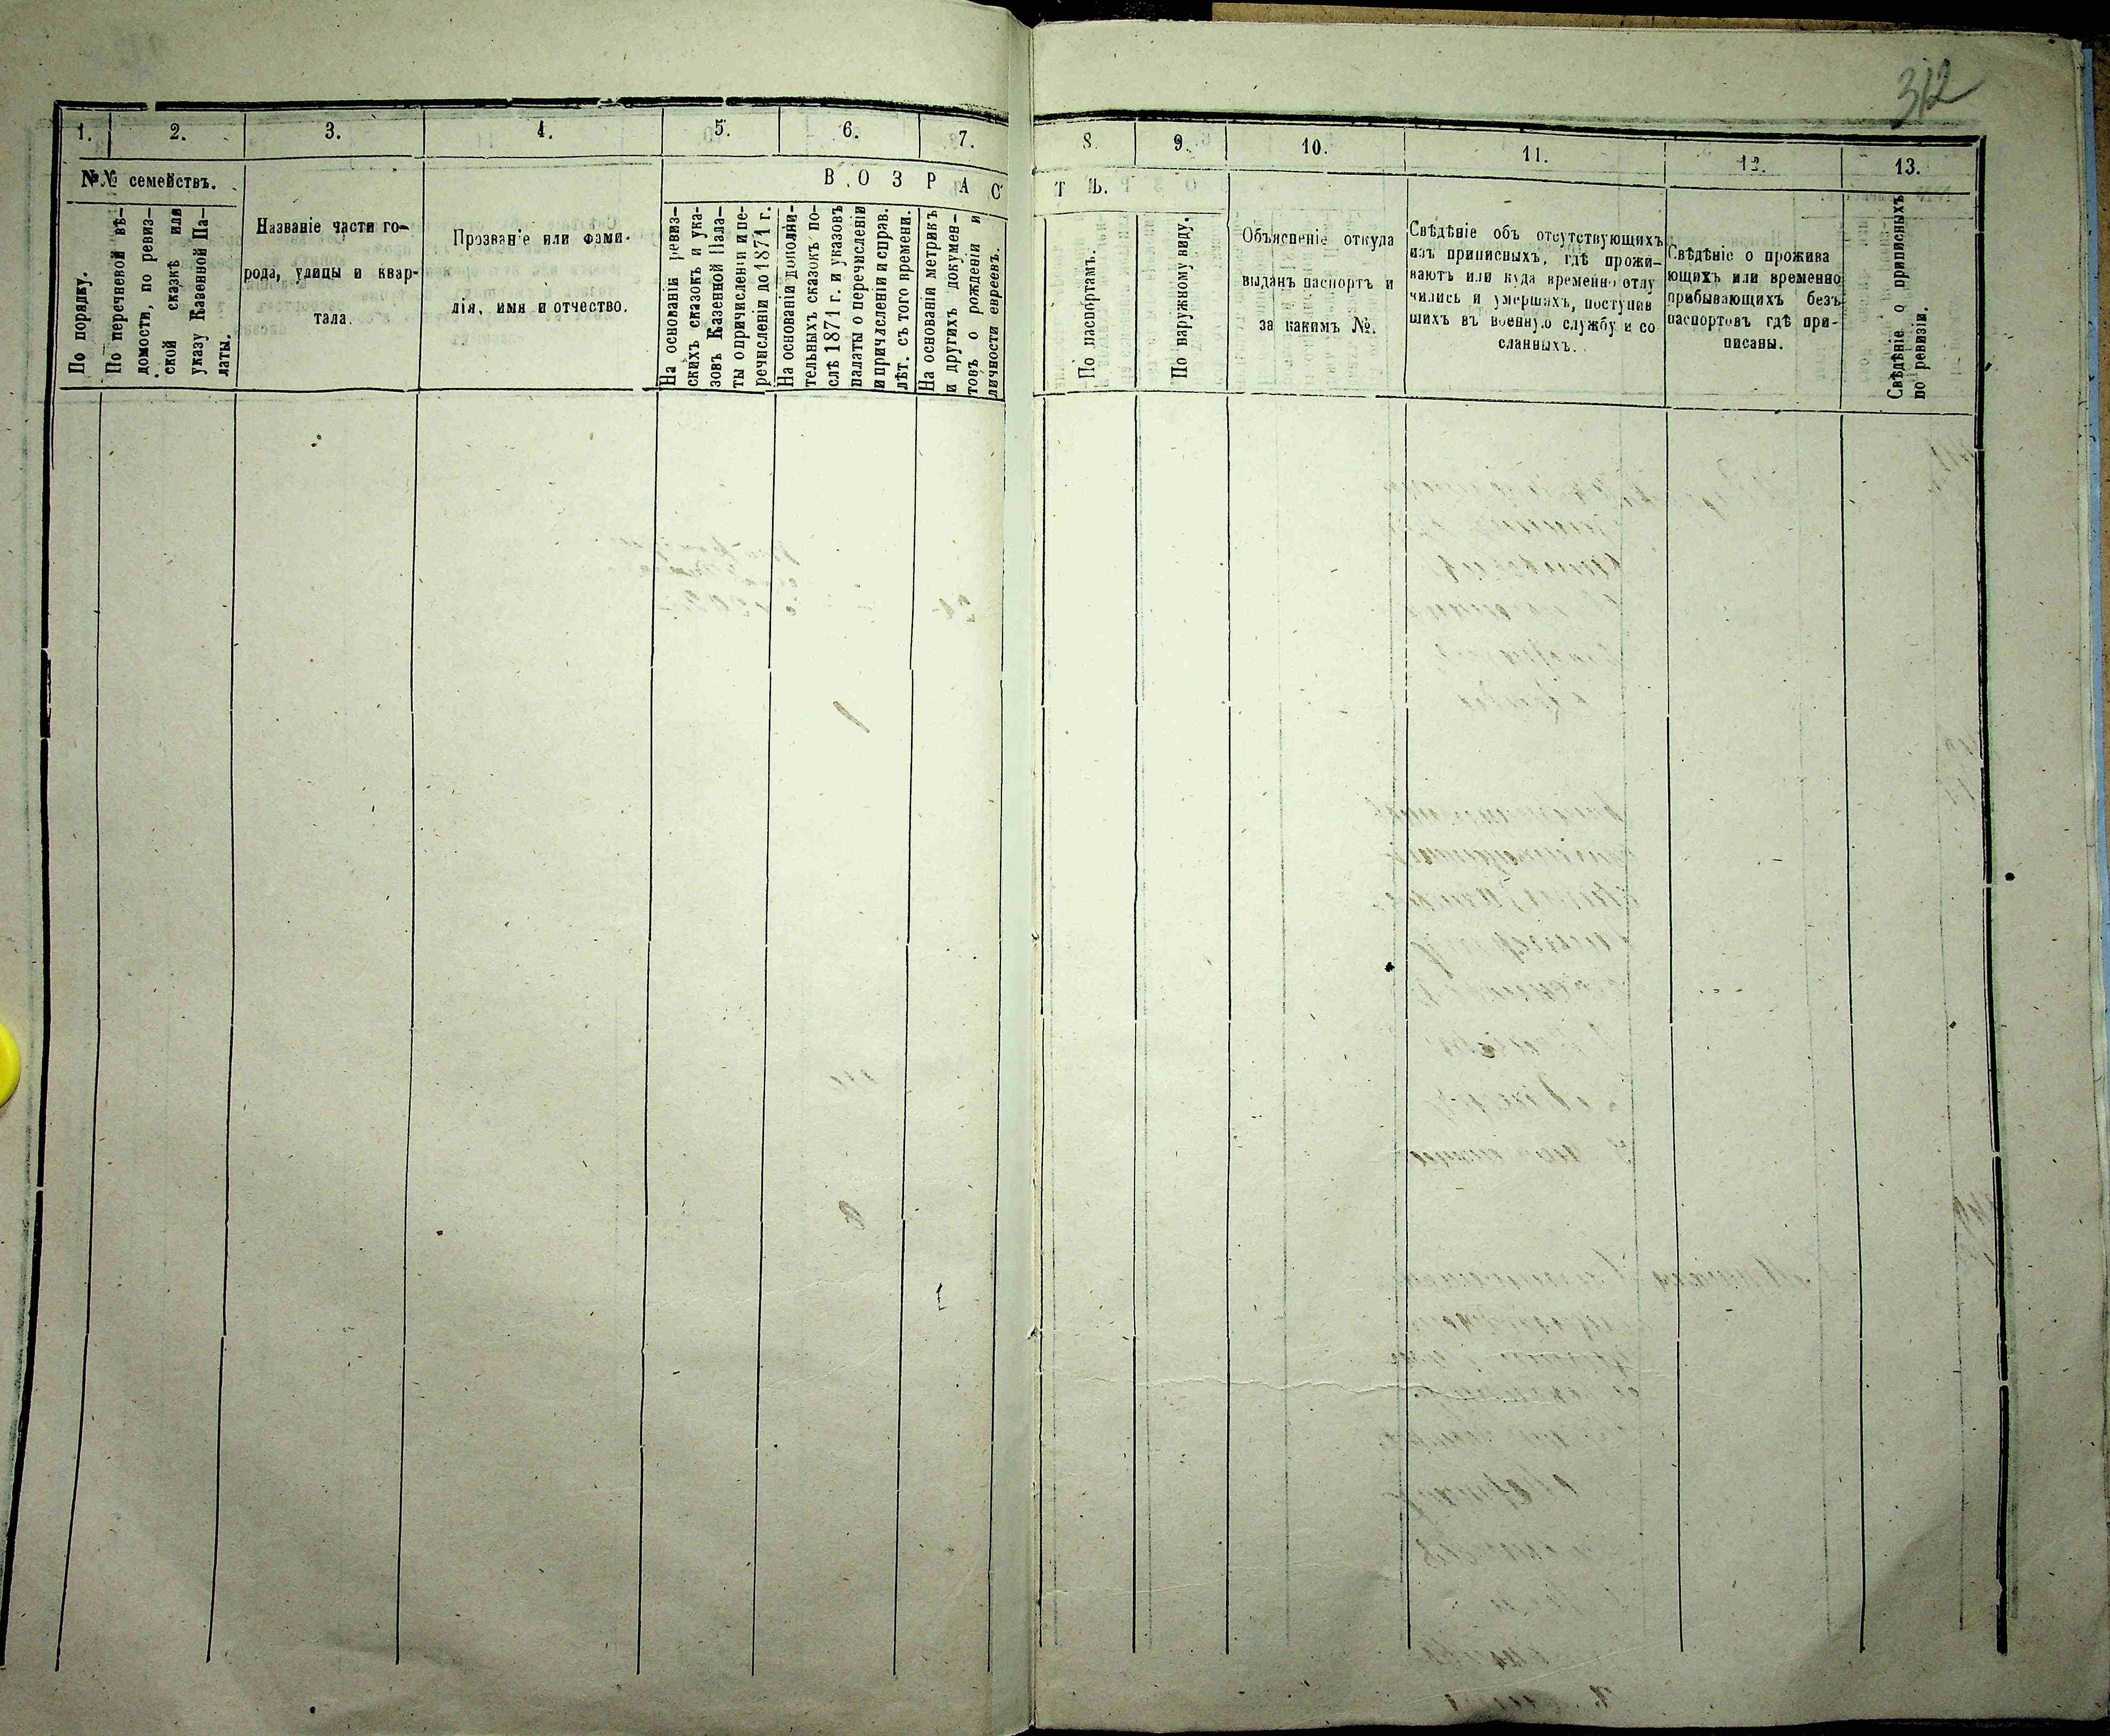 312
1.
2.
3.
4.
5.
6.
7.
8.
9.
10.
11.
12.
13.
№№ семействъ.
По порядку.
По перечневой вѣ-
домости, по ревиз-
ской сказкѣ или
указу Казенной Па-
латы.
Названіе части го-
рода, улицы и квар-
тала.
Прозваніе или фами-
лія, имя и отчество.
ВОЗРАС
На основаніи ревиз-
скихъ сказокъ и ука-
зовъ Казенной Пала-
ты о причисленіи и пе-
речисленіи до 1871 г.
На основаніи дополни-
тельныхъ сказокъ по-
слѣ 1871 г. и указовъ
палаты о перечисленіи
и причисленіи и справ.
лѣт. съ того времени.
На основаніи метрикъ
и другихъ докумен-
товъ о рожденіи и
личности евреевъ.
ТѢ.
По паспортамъ.
По наружному виду.
Объясненіе откуда
выданъ паспортъ и
за какимъ №.
Свѣдѣніе объ отсутствующихъ
изъ приписныхъ, гдѣ прожи-
ваютъ или куда временно отлу
чились и умершихъ, поступив
шихъ въ военную службу и со
сланныхъ.
Свѣдѣніе о прожива
ющихъ или временно
прибывающихъ безъ
паспортовъ гдѣ при-
писаны.
Свѣдѣніе о приписныхъ
по ревизіи.